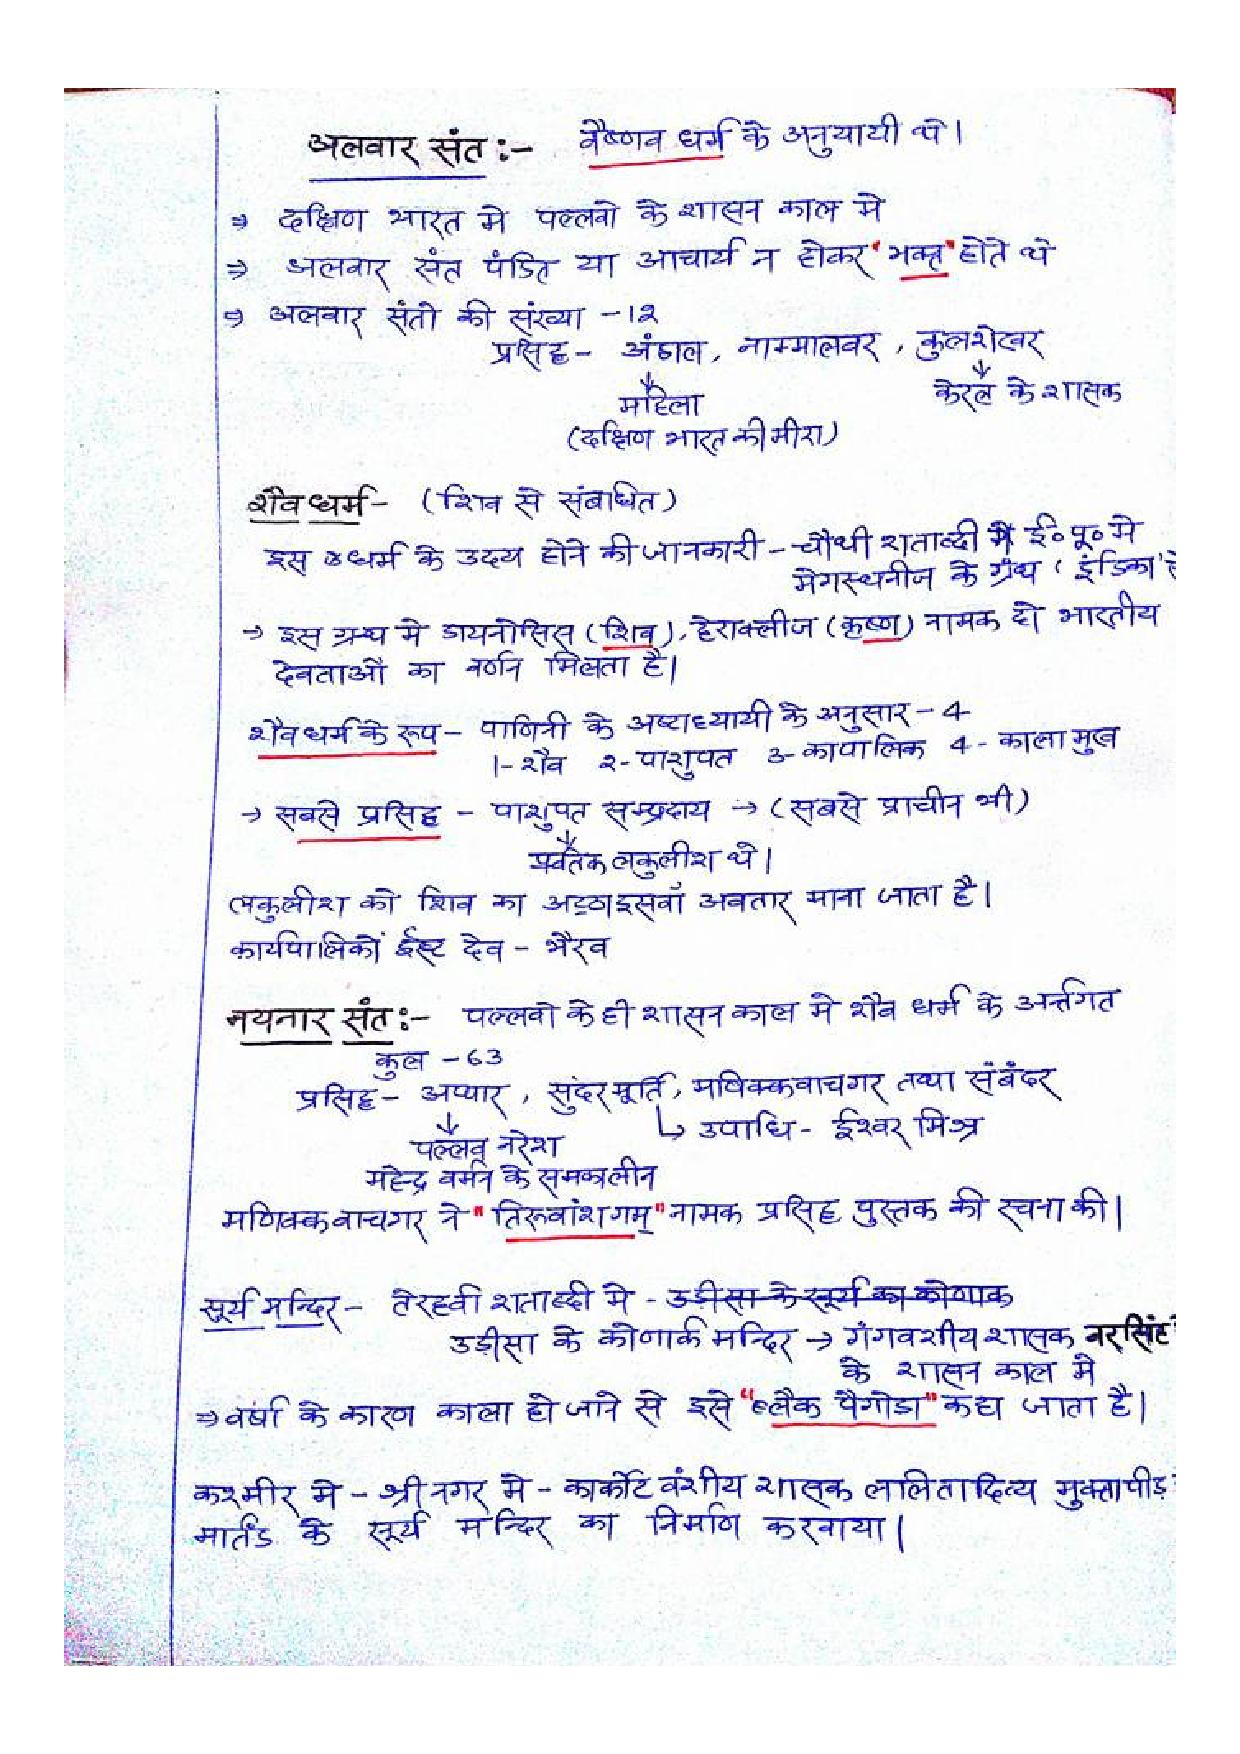 अलवार संत :- वैष्णव धर्म के अनुयायी थे।
⇒ दक्षिण भारत मे पल्लवो के शासन काल मे
⇒ अलवार संत पंडित या आचार्य न होकर 'भक्त' होते थे
⇒ अलवार संतो की संख्या - 12
प्रसिद्ध - अंडाल, नाम्मालवर, कुलशेखर
↓ महिला ↓ केरल के शासक
(दक्षिण भारत की मीरा)
शैव धर्म - (शिव से संबाधित)
इस धर्म के उदय होने की जानकारी - चौथी शताब्दी मे ई० पू० मे
मेगस्थनीज के ग्रंथ 'इंडिका' से
→ इस ग्रन्थ मे डायनोसिस (शिव), हेराक्लीज (कृष्ण) नामक दो भारतीय
देवताओं का वर्णन मिलता है।
शैव धर्म के रूप - पाणिनी के अष्टाध्यायी के अनुसार - 4
1- शैव 2- पाशुपत 3- कापालिक 4- काला मुख
→ सबसे प्रसिद्ध - पाशुपत सम्प्रदाय → (सबसे प्राचीन भी)
↓
प्रर्वतक लकुलीश थे।
लकुलीश को शिव का अठ्ठाइसवाँ अवतार माना जाता है।
कार्यपालिकों ईष्ट देव - भैरव
नयनार संत :- पल्लवो के ही शासन काल मे शैव धर्म के अर्न्तगत
कुल - 63
प्रसिद्ध - अप्पार, सुंदर मूर्ति, मणिक्कवाचगर तथा संबंदर
↓ ↳ उपाधि - ईश्वर मिश्र
पल्लव नरेश
महेन्द्र वर्मन के समकालीन
मणिक्कवाचगर ने "तिरूवांशगम्" नामक प्रसिद्ध पुस्तक की रचना की।
सूर्य मन्दिर - तेरहवी शताब्दी मे - उड़ीसा के सूर्य का कोणाक
उड़ीसा के कोणार्क मन्दिर → गंगवशीय शासक नरसिंह
के शासन काल मे
⇒ वर्षा के कारण काला हो जाने से इसे "ब्लैक पैगोडा" कहा जाता है।
कश्मीर मे - श्रीनगर मे - कार्कोट वंशीय शासक ललितादित्य मुक्तापीड़
मार्तंड के सूर्य मन्दिर का निर्माण करवाया।